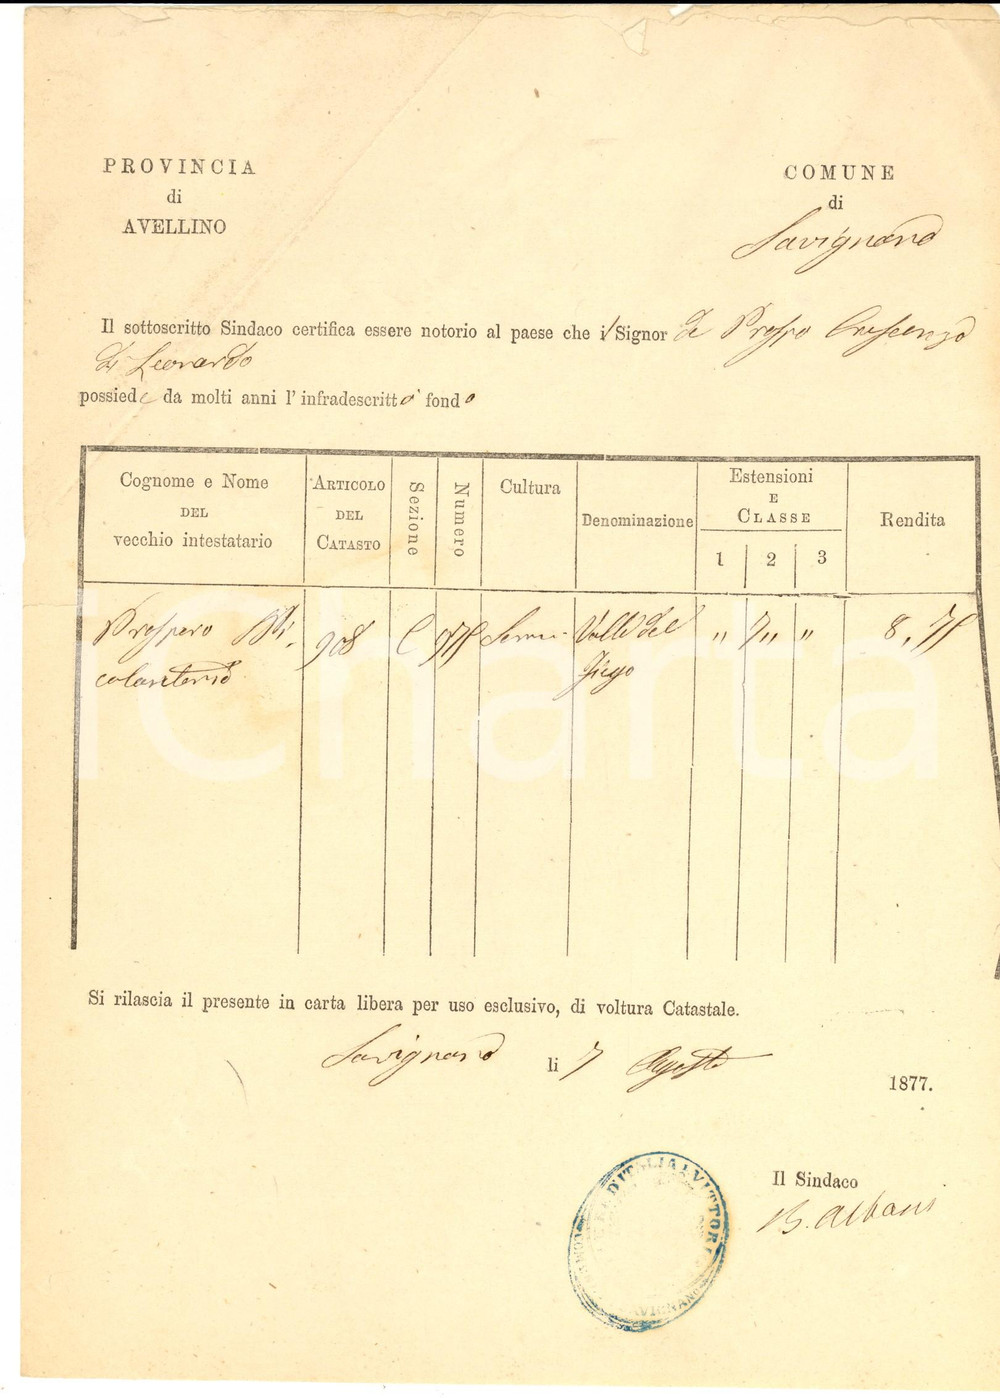 PROVINCIA
di
AVELLINO
COMUNE
di
Savignano
Il sottoscritto Sindaco certifica essere notorio al paese che il Signor de Prospo Crescenzo
di Leonardo
possiede da molti anni l' infradescritto fondo
Cognome e Nome
DEL
vecchio intestatario
ARTICOLO
DEL
CATASTO
Sezione
Numero
Cultura
Denominazione
Estensioni
E
CLASSE
1 2 3
Rendita
Prospero
908 C 975 Valle del " 7 " " 8,75
colantonio
Si rilascia il presente in carta libera per uso esclusivo, di voltura Catastale.
Savignano li 7 Agosto 1877.
Il Sindaco
B. Albani
D'ITALIA VITTORI
iCharta